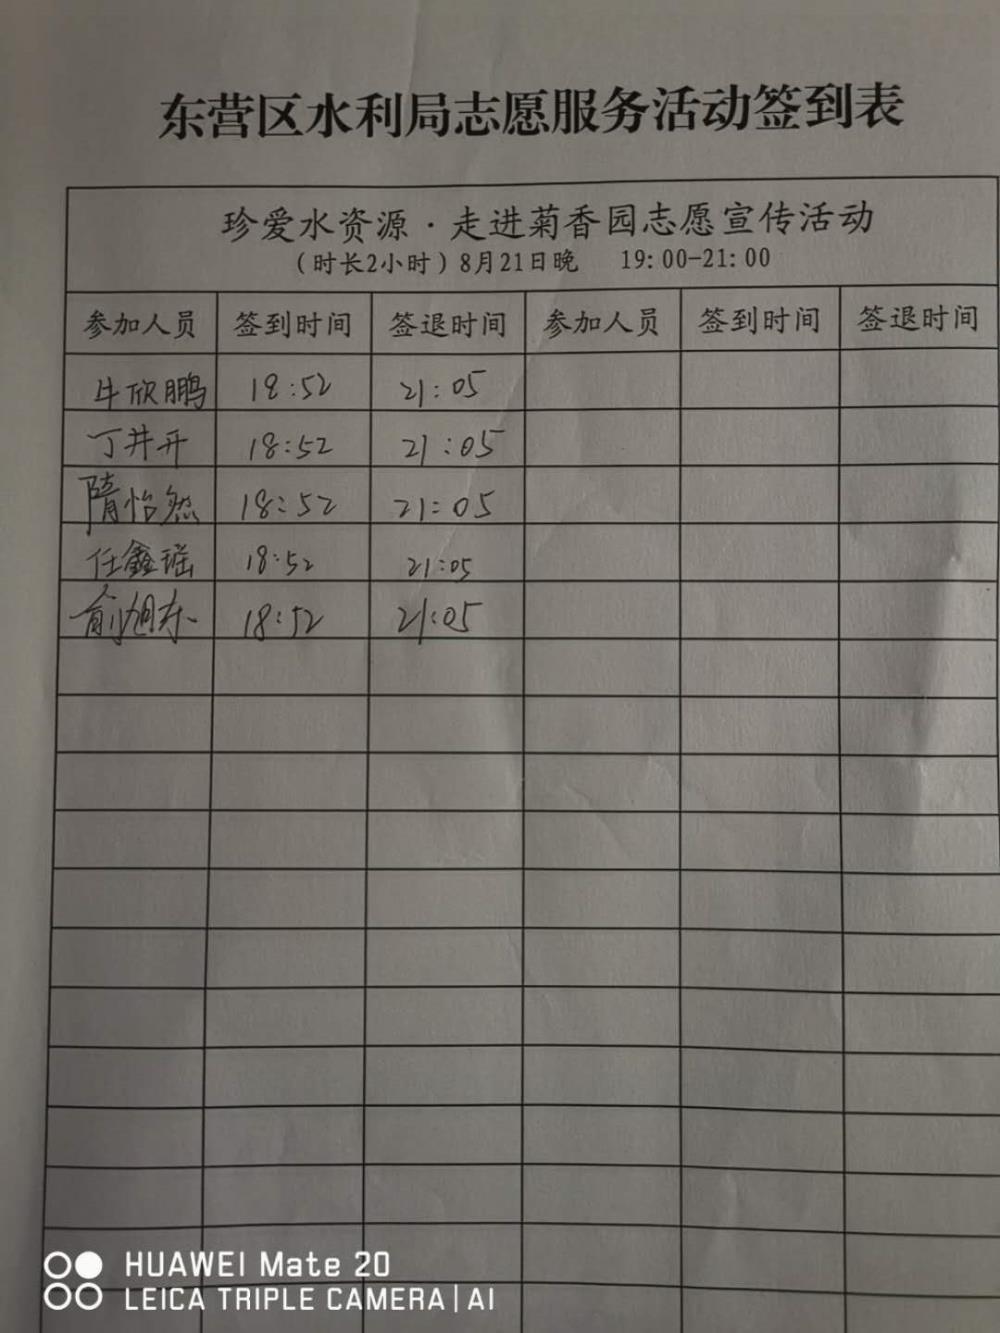 东营区水利局志愿服务活动签到表
珍爱水资源·走进菊香园志愿宣传活动
（时长2小时）8月21日晚 19:00-21:00
参加人员 签到时间 签退时间 参加人员 签到时间 签退时间
牛欣鹏 18:52 21:05
丁井开 18:52 21:05
隋怡然 18:52 21:05
任鑫瑶 18:52 21:05
俞旭东 18:52 21:05
HUAWEI Mate 20
LEICA TRIPLE CAMERA | AI